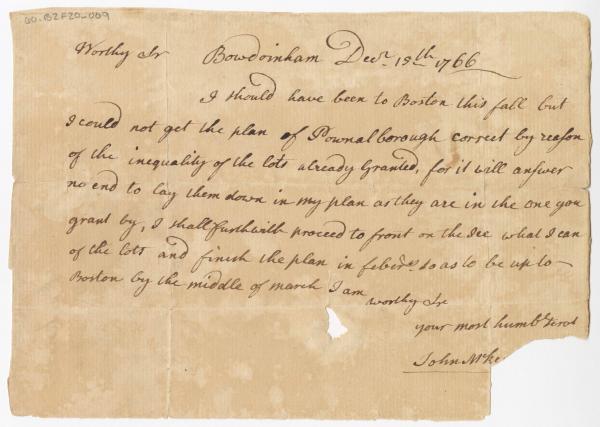 00.B2F20-009
Worthy Sr Bowdoinham Decr. 15th 1766
I should have been to Boston this fall but
I could not get the plan of Pownalborough correct by reason
of the inequality of the lots already Granted, for it will answer
no end to lay them down in my plan as they are in the one you
grant by, I shall furthwith proceed to front on the Ice what I can
of the lots and finish the plan in febry. so as to be up to
Boston by the middle of march I am
worthy Sr
your most humbl Servt
John McKe